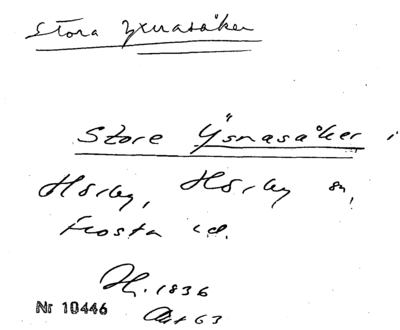 Stora Yxnasåker
Store Ÿsnasåker i
Hörby, Hörby sn,
Frosta hd.
H. 1836
Akt 63
Nr 10446